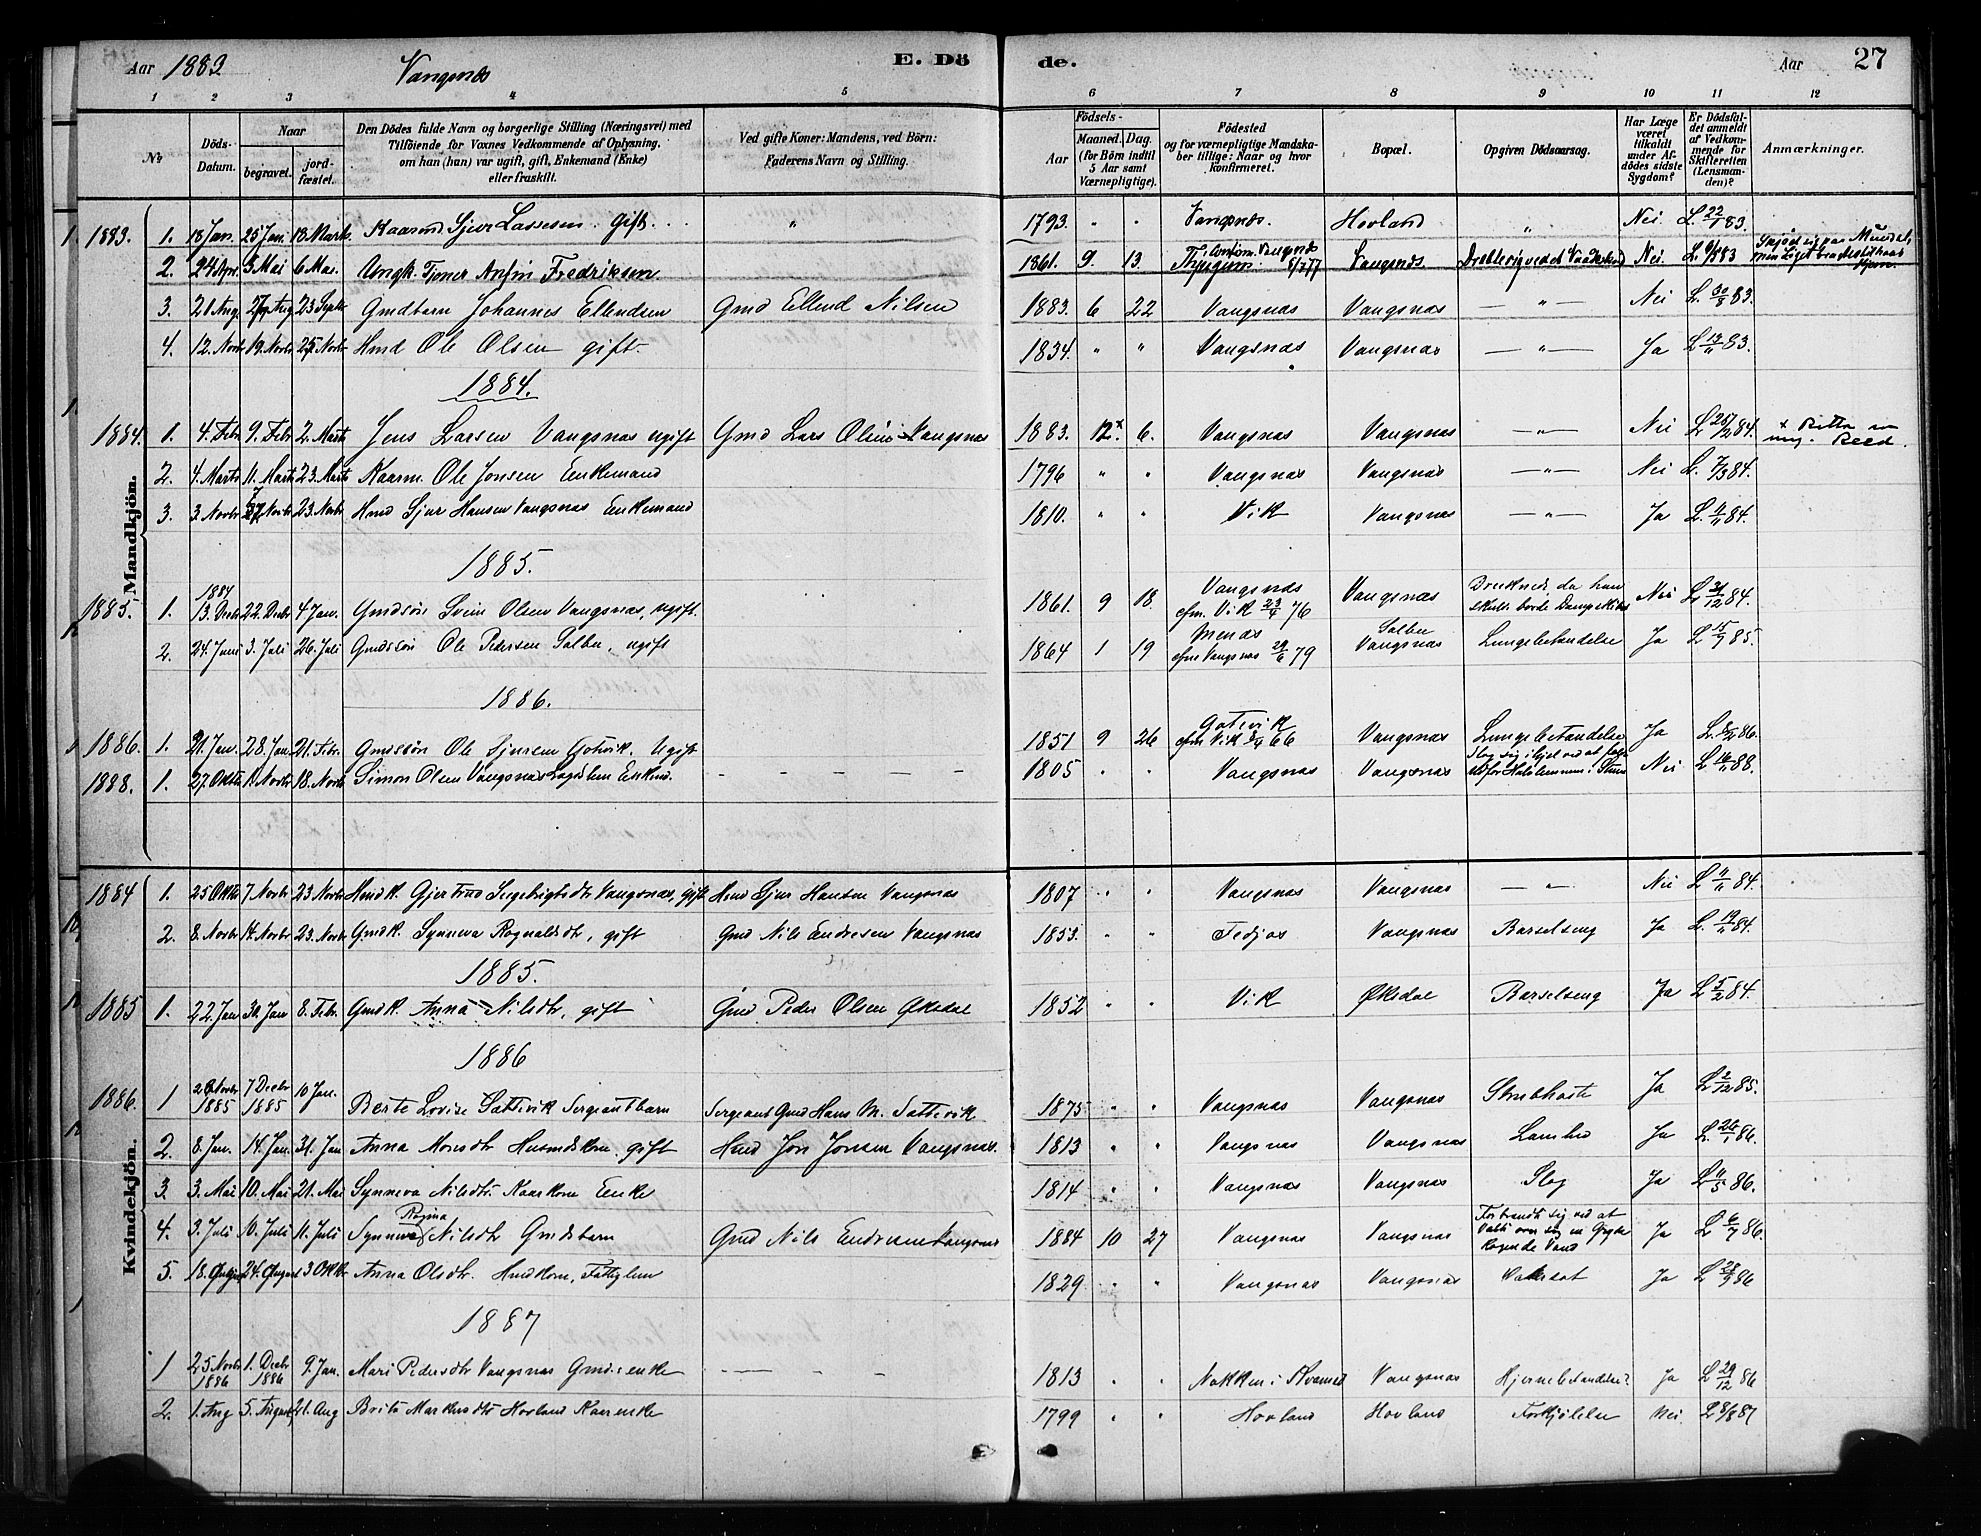 Aar 1883 Vangsnes E. Dö de. Aar 27
1 2 3 4 5 6 7 8 9 10 11 12
No
Döds-Datum.
Naar
begravet.
jord-fæstet.
Den Dödes fulde Navn og borgerlige Stilling (Næringsvei) med
Tilföiende for Voxnes Vedkommende af Oplysning,
om han (hun) var ugift, gift, Enkemand (Enke)
eller fraskilt.
Ved gifte Koner: Mandens, ved Börn:
Faderens Navn og Stilling.
Födsels-
Aar
Maaned. Dag.
(for Börn indtil
5 Aar samt
Værnepligtige).
Födested
og for værnepligtige Mandska-
ber tillige: Naar og hvor
konfirmeret.
Bopæl.
Opgiven Dödsaarsag.
Har Læge
været
tilkaldt
under Af-
dödes sidste
Sygdom?
Er Dödsfal-
det anmeldt
af Vedkom-
mende for
Skifteretten
(Lensman-
den)?
Anmærkninger.
Mandkjön.
1883. 1. 18 Jan. 25 Jan. 18 Marts Kaarmd Sjur Lassesen gift. " 1793. " " Vangsnes. Hovland " Nei L. 22/1 83.
2. 24 Apr. 3 Mai 6 Mai. Ungk. Anfin Fredriksen 1861. 9. 13. Vangsnes Nei L. 83
3. 21 Aug. 27 Aug 23 Septr Gmdbarn Johannes Ellendsen Gmd Ellend Nilsen 1883. 6 22 Vangsnæs Vangsnæs — " — Nei L. 30/8 83.
4. 12. Novbr 19. Novbr 25 Novbr Hmd Ole Olsen gift. 1834. " " Vangsnæs Vangsnæs — " — Ja L 13/11 83.
1884.
1884. 1. 4. Febr 9. Febr 2. Marts Jens Larsen Vangsnæs ugift Gmd Lars Olsen Vangsnæs 1883. 12.x 6. Vangsnæs Vangsnæs — " — Nei L 84. x
2. 4. Marts 11. Marts 23. Marts Kaarm. Ole Jonsen Enkemand 1796 " " Vangsnæs Vangsnæs — " — Nei L. 7/3 84.
3. 3. Novbr Novbr 23. Novbr Hmd Sjur Hansen Vangsnæs Enkemand 1810. " " Vik Vangsnæs — " — Ja L. 84.
1885.
1885. 1. 1884 13. Decbr 22. Decbr 4 Jan. Gmdsön Svein Olsen Vangsnæs, ugift. 1861. 9 18. Vangsnæs cfm. Vik 23/4 76 Vangsnæs Druknede, da han skulde borde Dampskibet Nei L 31/12 84.
2. 24. Juni 3. Juli 26. Juli Gmdssön Ole Pedersen Salbu, ugift 1864 1 19 cfm Vangsnæs 29/6 79 Salbu Vangsnæs Lungebetændelse Ja L 85.
1886.
1886. 1. 21. Jan. 28. Jan. 21. Febr. Gmdssön Ole Sjursen Gotevik. Ugift 1851 9 26 Gotevik cfm Vik 66 Vangsnæs Lungebetændelse Ja L. 86.
1888. 1. 27. Oktbr 11. Novbr 18. Novbr Simon Olsen Vangsnæs Enkmd. – – – – – 1805 " " Vangsnæs Vangsnæs Slog sig ihjel ved at falde Nei L 88.
Kvindekjön.
1884 1. 25 Oktbr 7 Novbr 23 Novbr Hmdk. Gjertrud Vangsnæs, gift Hmd Sjur Hansen Vangsnæs 1807 " " Vangsnæs Vangsnæs — " — Nei L 84.
2. 8. Novbr 14. Novbr 23. Novbr Gmdk. Synneva Rognaldsdtr, gift Gmd Nils Endresen Vangsnæs 1853. " " Fedjos Vangsnæs Barselseng Ja L. 84.
1885.
1885 1. 22. Jan 30. Jan 8. Febr. Gmdk. Anna Nilsdtr, gift Gmd. Peder Olsen Øksdal 1852 " " Vik Øksdal Barselseng Ja L 5/2 84.
1886
1886. 1 Novbr 1885 7 Decbr 1885 10 Jan. Berte Lovise Sattevik Sergeantbarn Sergeant Gmd Hans M. Sattevik 1875 " " Vangsnæs Vangsnæs Strubhoste Ja L 2/12 85.
2. 8. Jan. 14. Jan. 31. Jan Anna Monsdtr Husmdskone, gift Hmd Jon Jonsen Vangsnæs. 1813 " " Vangsnæs Vangsnæs Lamhed Ja L. 26/1 86.
3. 3. Mai 10. Mai 21. Mai Synneva Nilsdtr. Kaarkone Enke 1814 " " Vangsnæs Vangsnæs Slag Ja L 86.
4. 3. Juli 10. Juli 11. Juli Synneva Nilsdtr Gmdsbarn Gmd Nils Endresen Vangsnæs 1884 10 27 Vangsnæs Vangsnæs Forbrændte sig ved at vælte over sig en Gryde kogende Vand Ja L 6/7 86.
5. 18. 24. 3 Oktbr Anna Olsdtr. Hmdkone, Fattiglem 1829 " " Vangsnæs Vangsnæs Vattersot Ja L 28/9 86
1887
1 25 Novbr 1886 1. Decbr 1886 9. Jan. Mari Pedersdtr Vangsnæs Gmdsenke — — – – 1813 " " Nokken i Vangsnæs Hjernebetændelse Ja L 29/12 86
2. 1. Aug 5. August 21. Aug Brita Markusdtr Hovland Kaarenke 1799 " " Hovland Hovland Forkjölelse Nei L 8/8 87